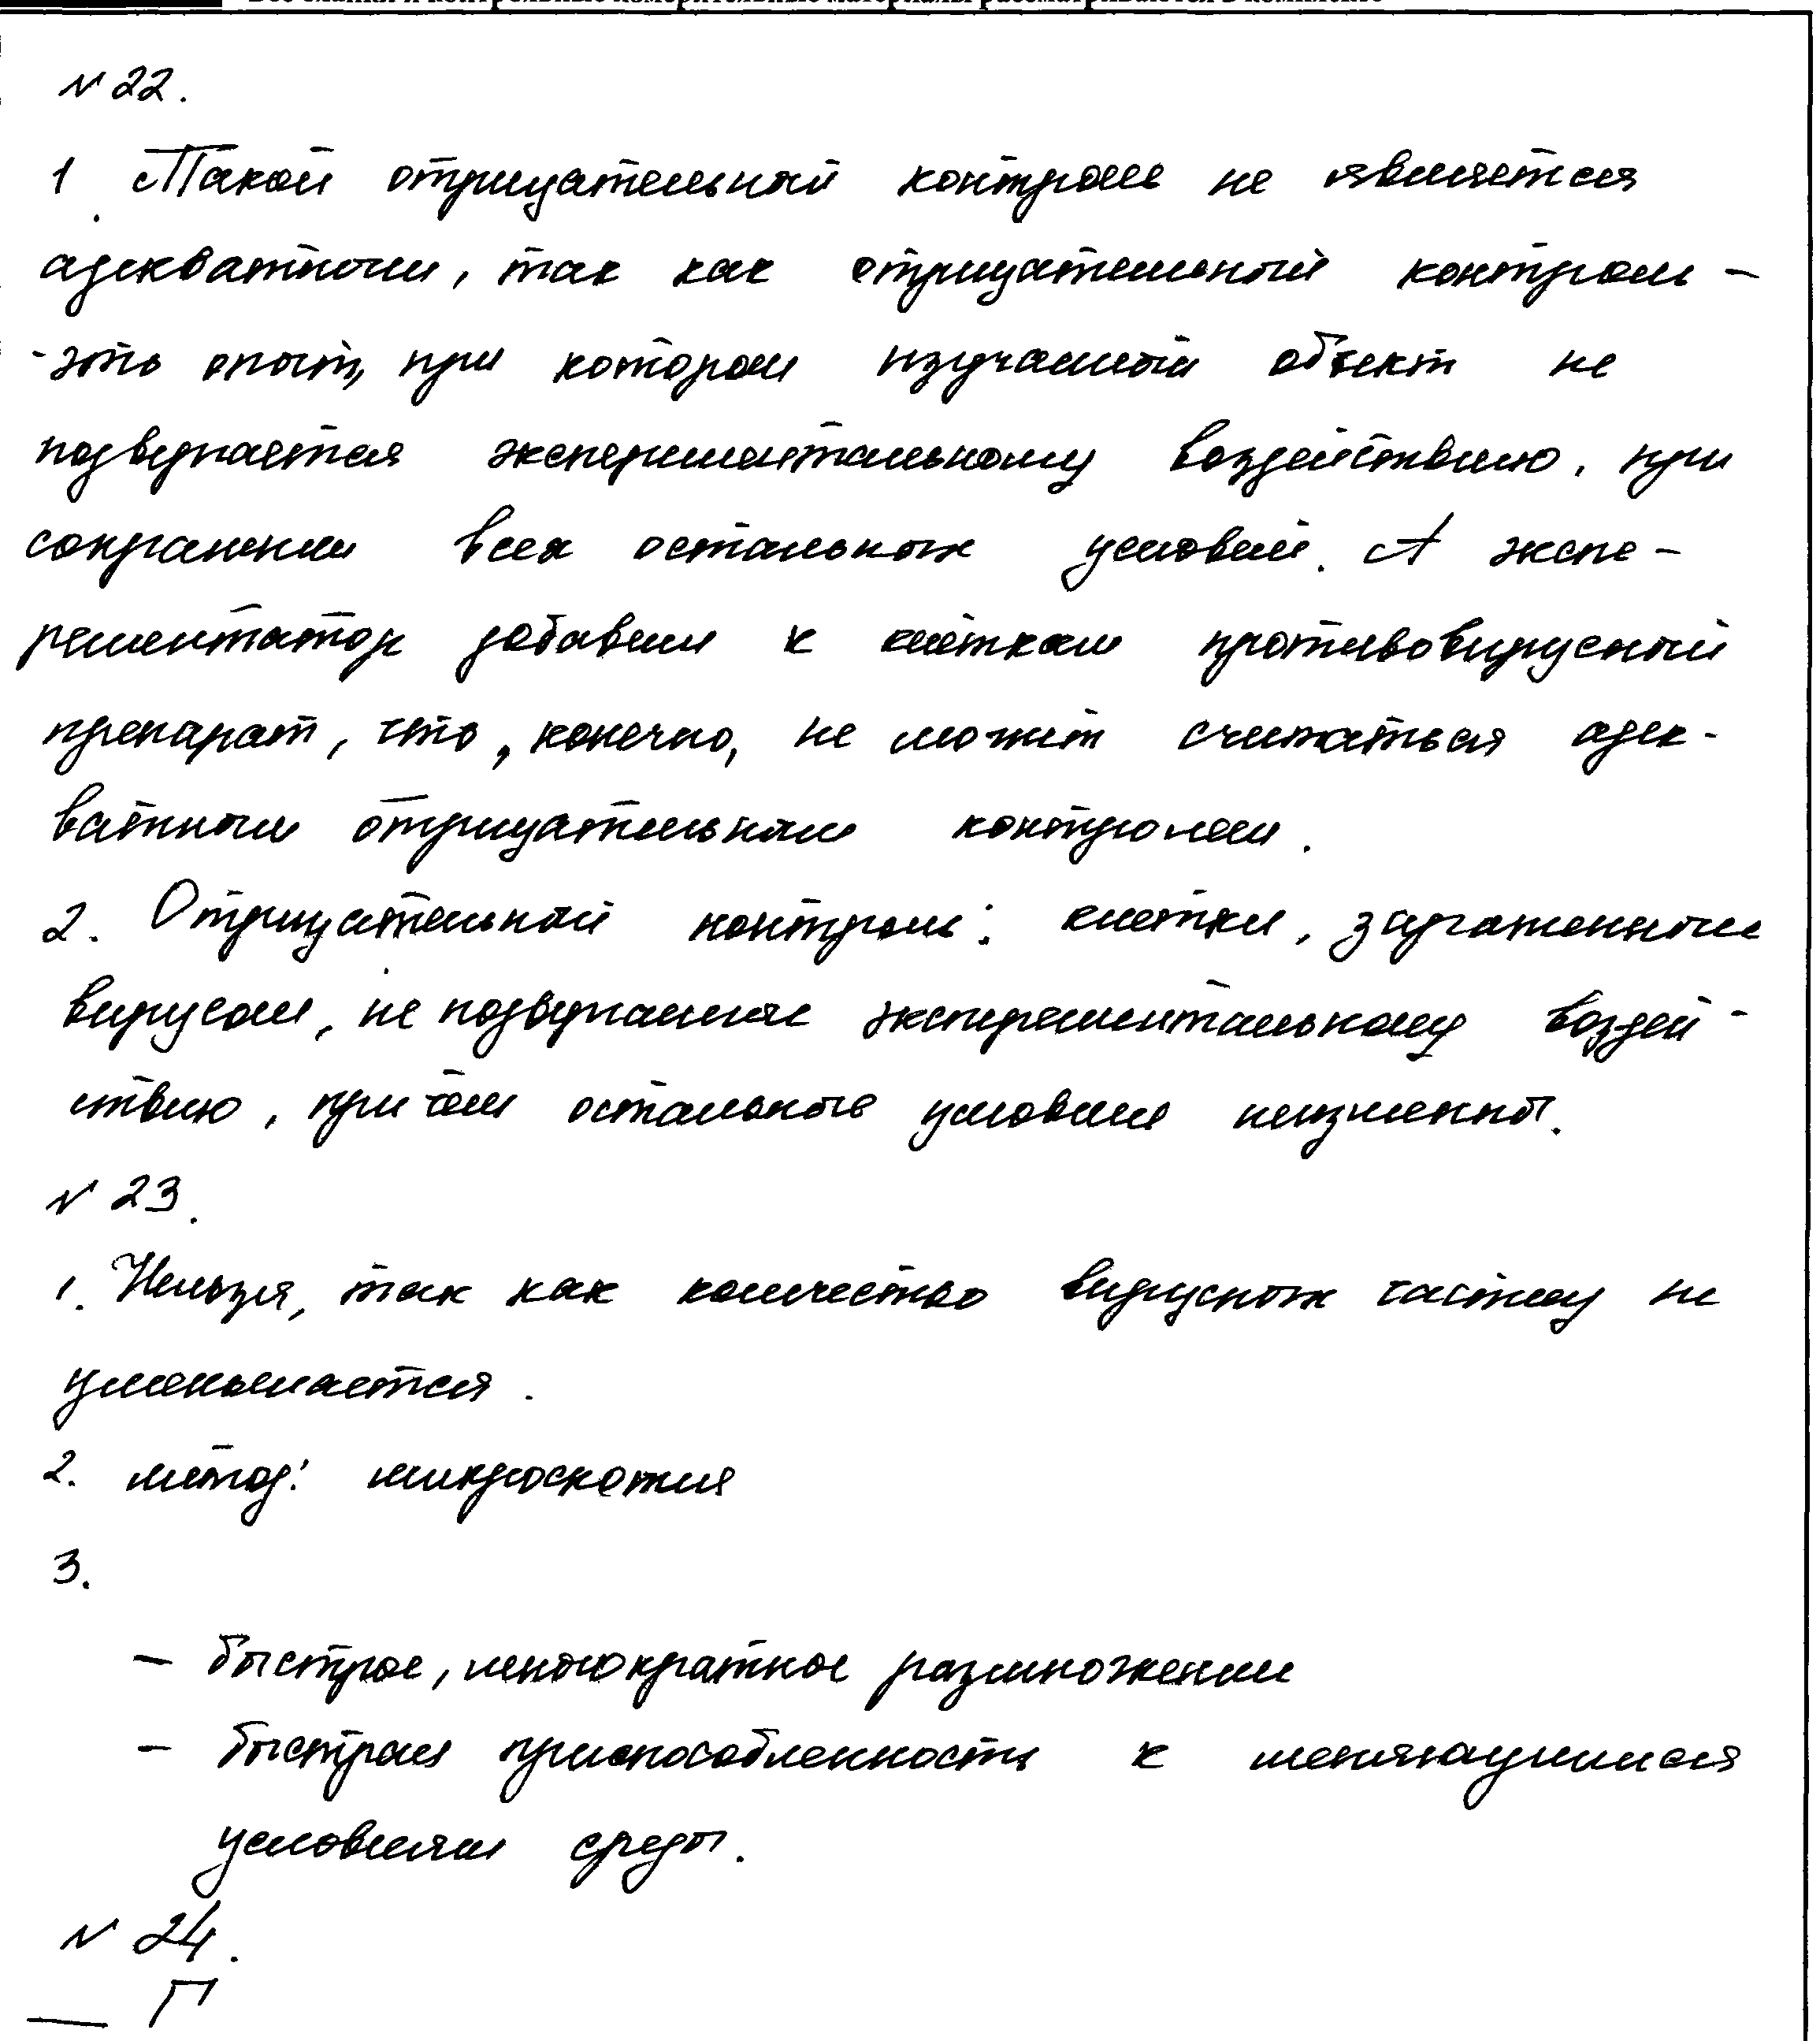 Все бланки и контрольные измерительные материалы рассматриваются в комплекте
№ 22.
1. Такой отрицательный контроль не является
адекватным, так как отрицательный контроль -
- это опыт, при котором изучаемый объект не
подвергается экспериментальному воздействию, при
сохранении всех остальных условий. А экспе-
рементатор добавил к клеткам противовирусный
препарат, что, конечно, не может считаться адек-
ватным отрицательным контролем.
2. Отрицательный контроль: клетки, зараженные
вирусом, не подвергаемые эксперементальному воздей-
ствию, при чём остальные условия неизменны.
№ 23.
1. Нельзя, так как количество вирусных частиц не
уменьшается.
2. метод: микроскопия
3.
- быстрое, многократное размножение
- быстрая приспособленность к меняющимся
условиям среды.
№ 24.
Г